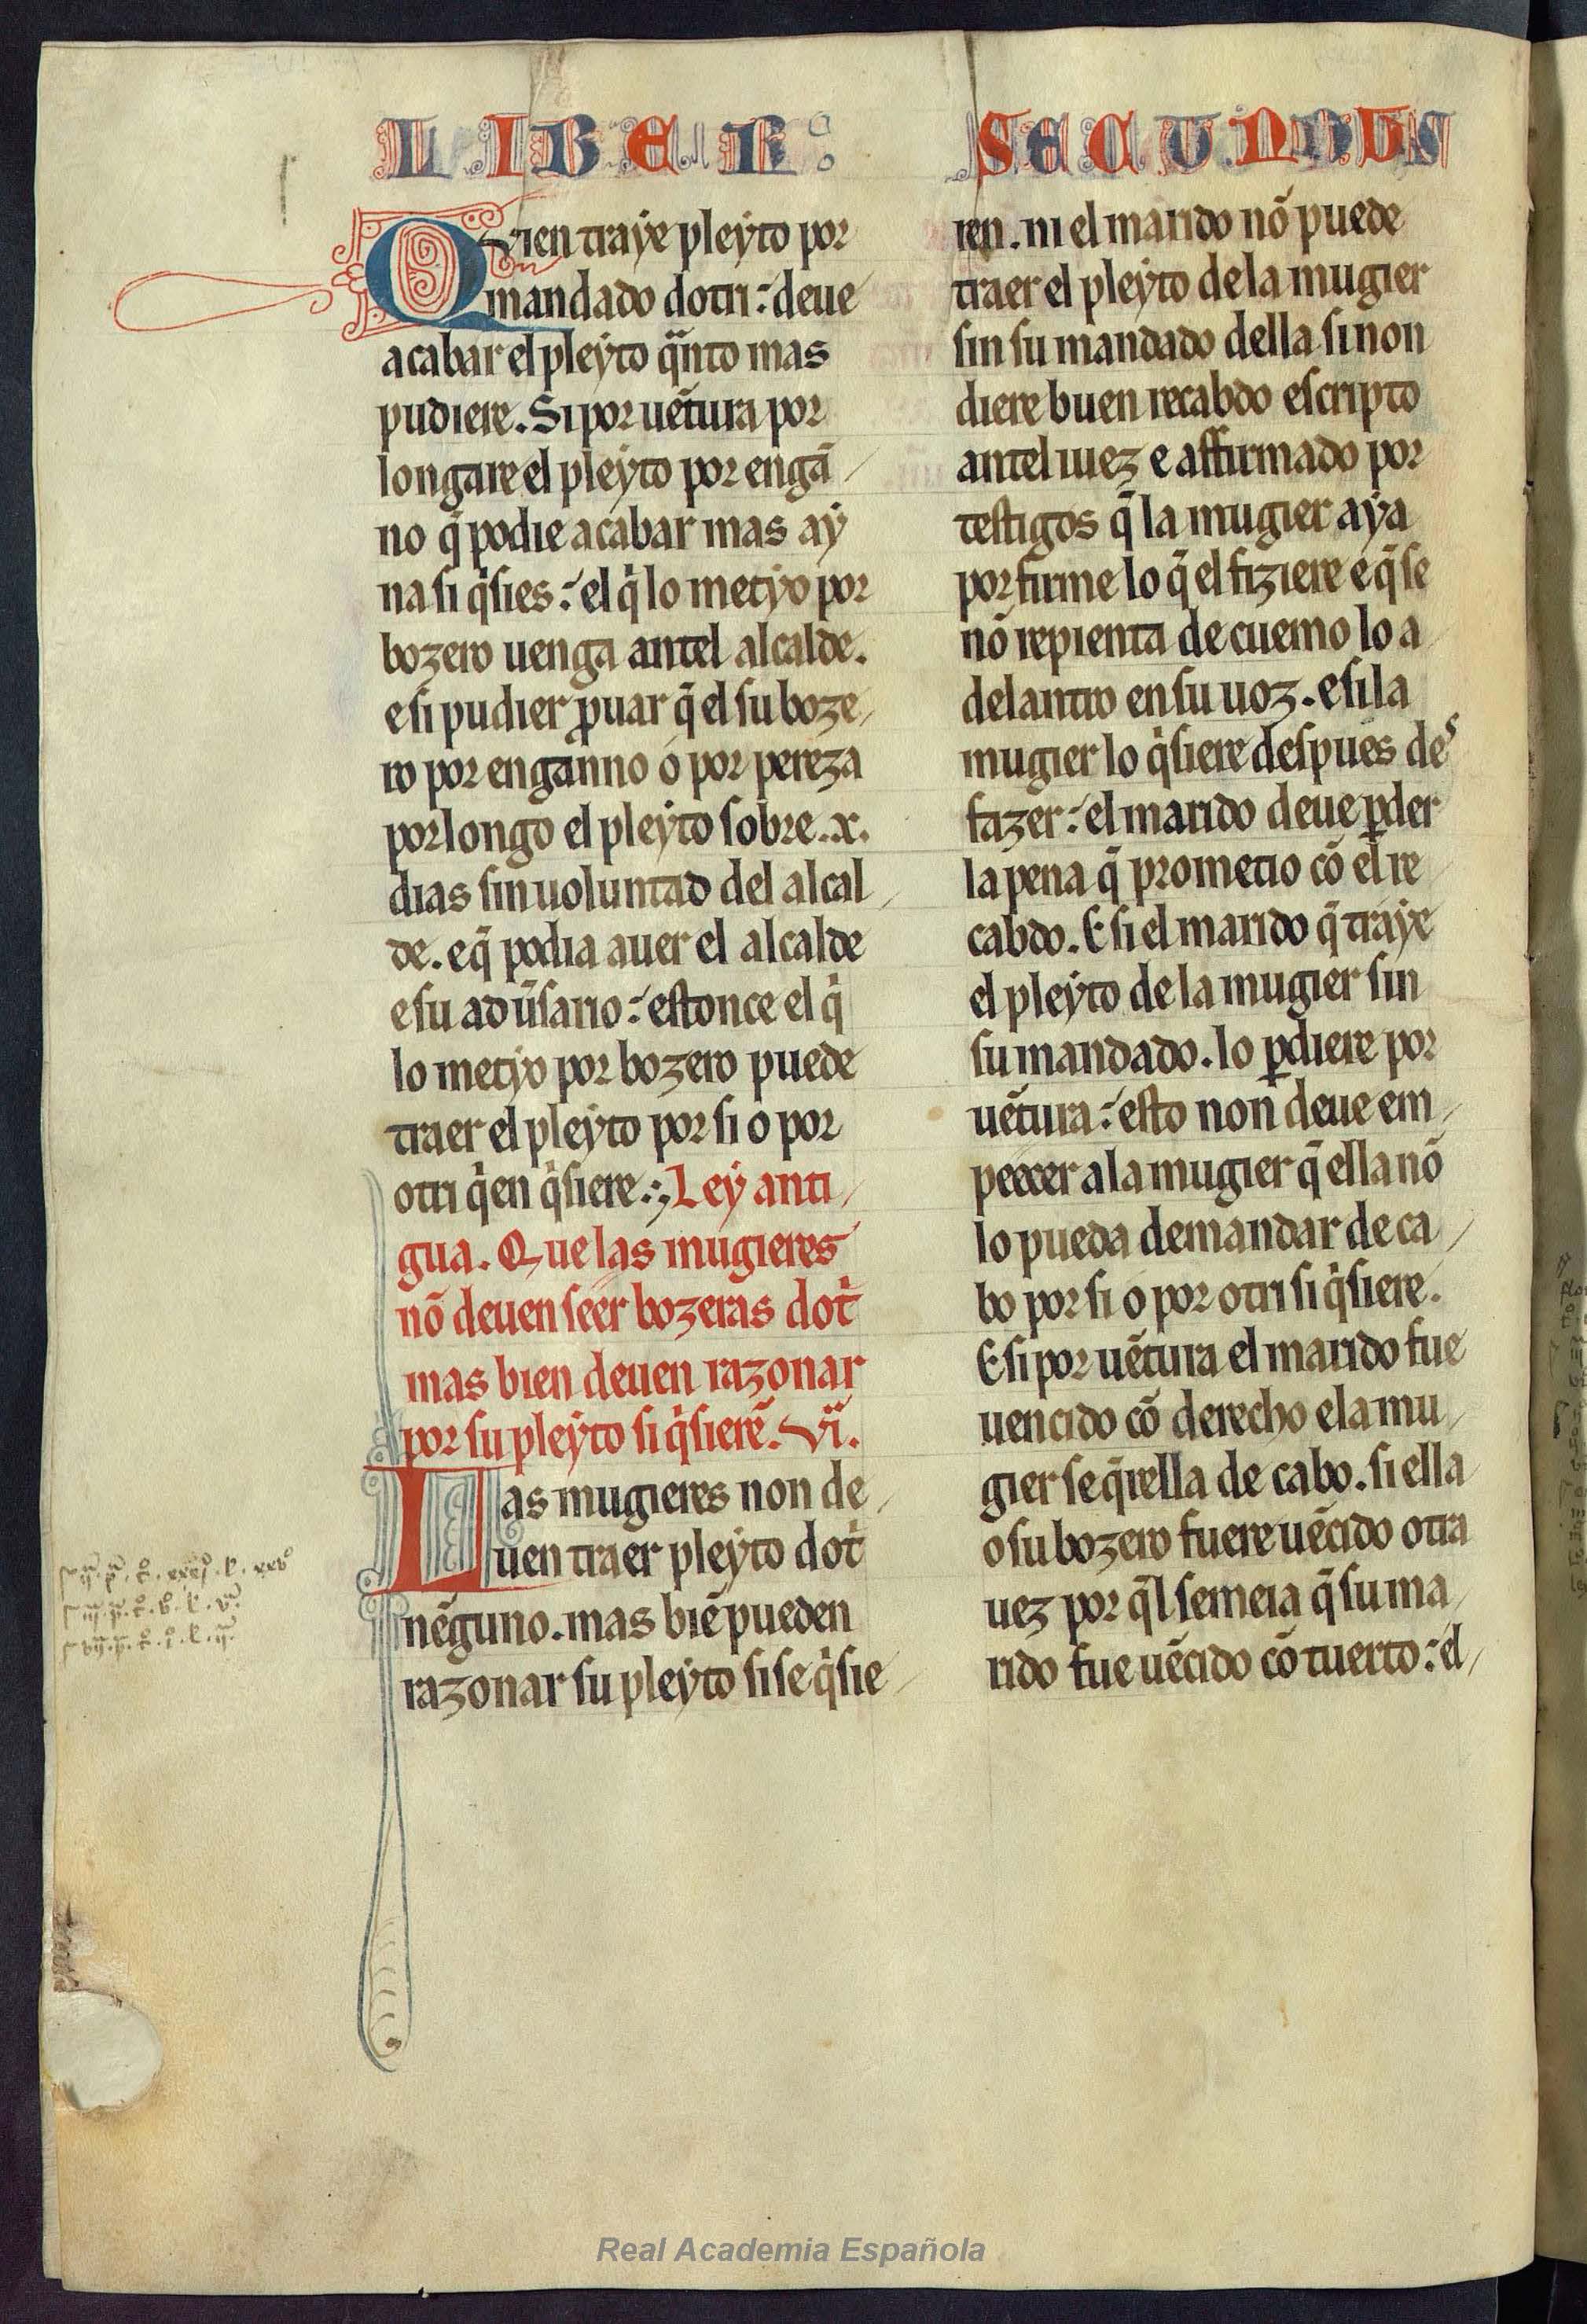 LIBER
SECUNDUS
Quien traẏe pleẏto por
mandado dotri: deue
acabar el pleẏto qͣnto mas
pudiere. Si por uẽtura por
longare el pleẏto por engã
no q̃ podie acabar mas aẏ
na si qͥsies: el qͥ lo metẏo por
bozero uenga antel alcalde.
e si pudier ꝓuar q̃ el su boze
ro por enganno o por pereza
porlongo el pleẏto sobre .x.
dias sin uoluntad del alcal
de. e q̃ podia auer el alcalde
e su adũsario: estonce el qͥ
lo metẏo por bozero puede
traer el pleẏto por si o por
otri qͥen qͥsiere.; Leẏ anti
gua. Que las mugieres
nõ deuen seer bozeras dotͥ
mas bien deuen razonar
por su pleẏto si qͥsierẽ. vi.
Las mugieres non de
uen traer pleẏto dotͥ
nẽguno. mas biẽ pueden
razonar su pleẏto si se qͥsie
ren. ni el marido nõ puede
traer el pleẏto de la mugier
sin su mandado della si non
diere buen recabdo escripto
antel iuez e affirmado por
testigos q̃ la mugier aẏa
por firme lo q̃ el fiziere e q̃ se
nõ repienta de cuemo lo a
delantro en su uoz. e si la
mugier lo qͥsiere despues des
fazer: el marido deue ꝑder
la pena q̃ prometio cõ el re
cabdo. E si el marido q̃ traẏe
el pleẏto de la mugier sin
su mandado. lo ꝑdiere por
uẽtura: esto non deue em
peecer a la mugier q̃ ella nõ
lo pueda demandar de ca
bo por si o por otri si qͥsiere.
E si por uẽtura el marido fue
uencido cõ derecho e la mu
gier se qͥrella de cabo. si ella
o su bozero fuere uẽcido otra
uez por q̃l semeia q̃ su ma
rido fue uẽcido cõ tuerto: el
Real Academia Española